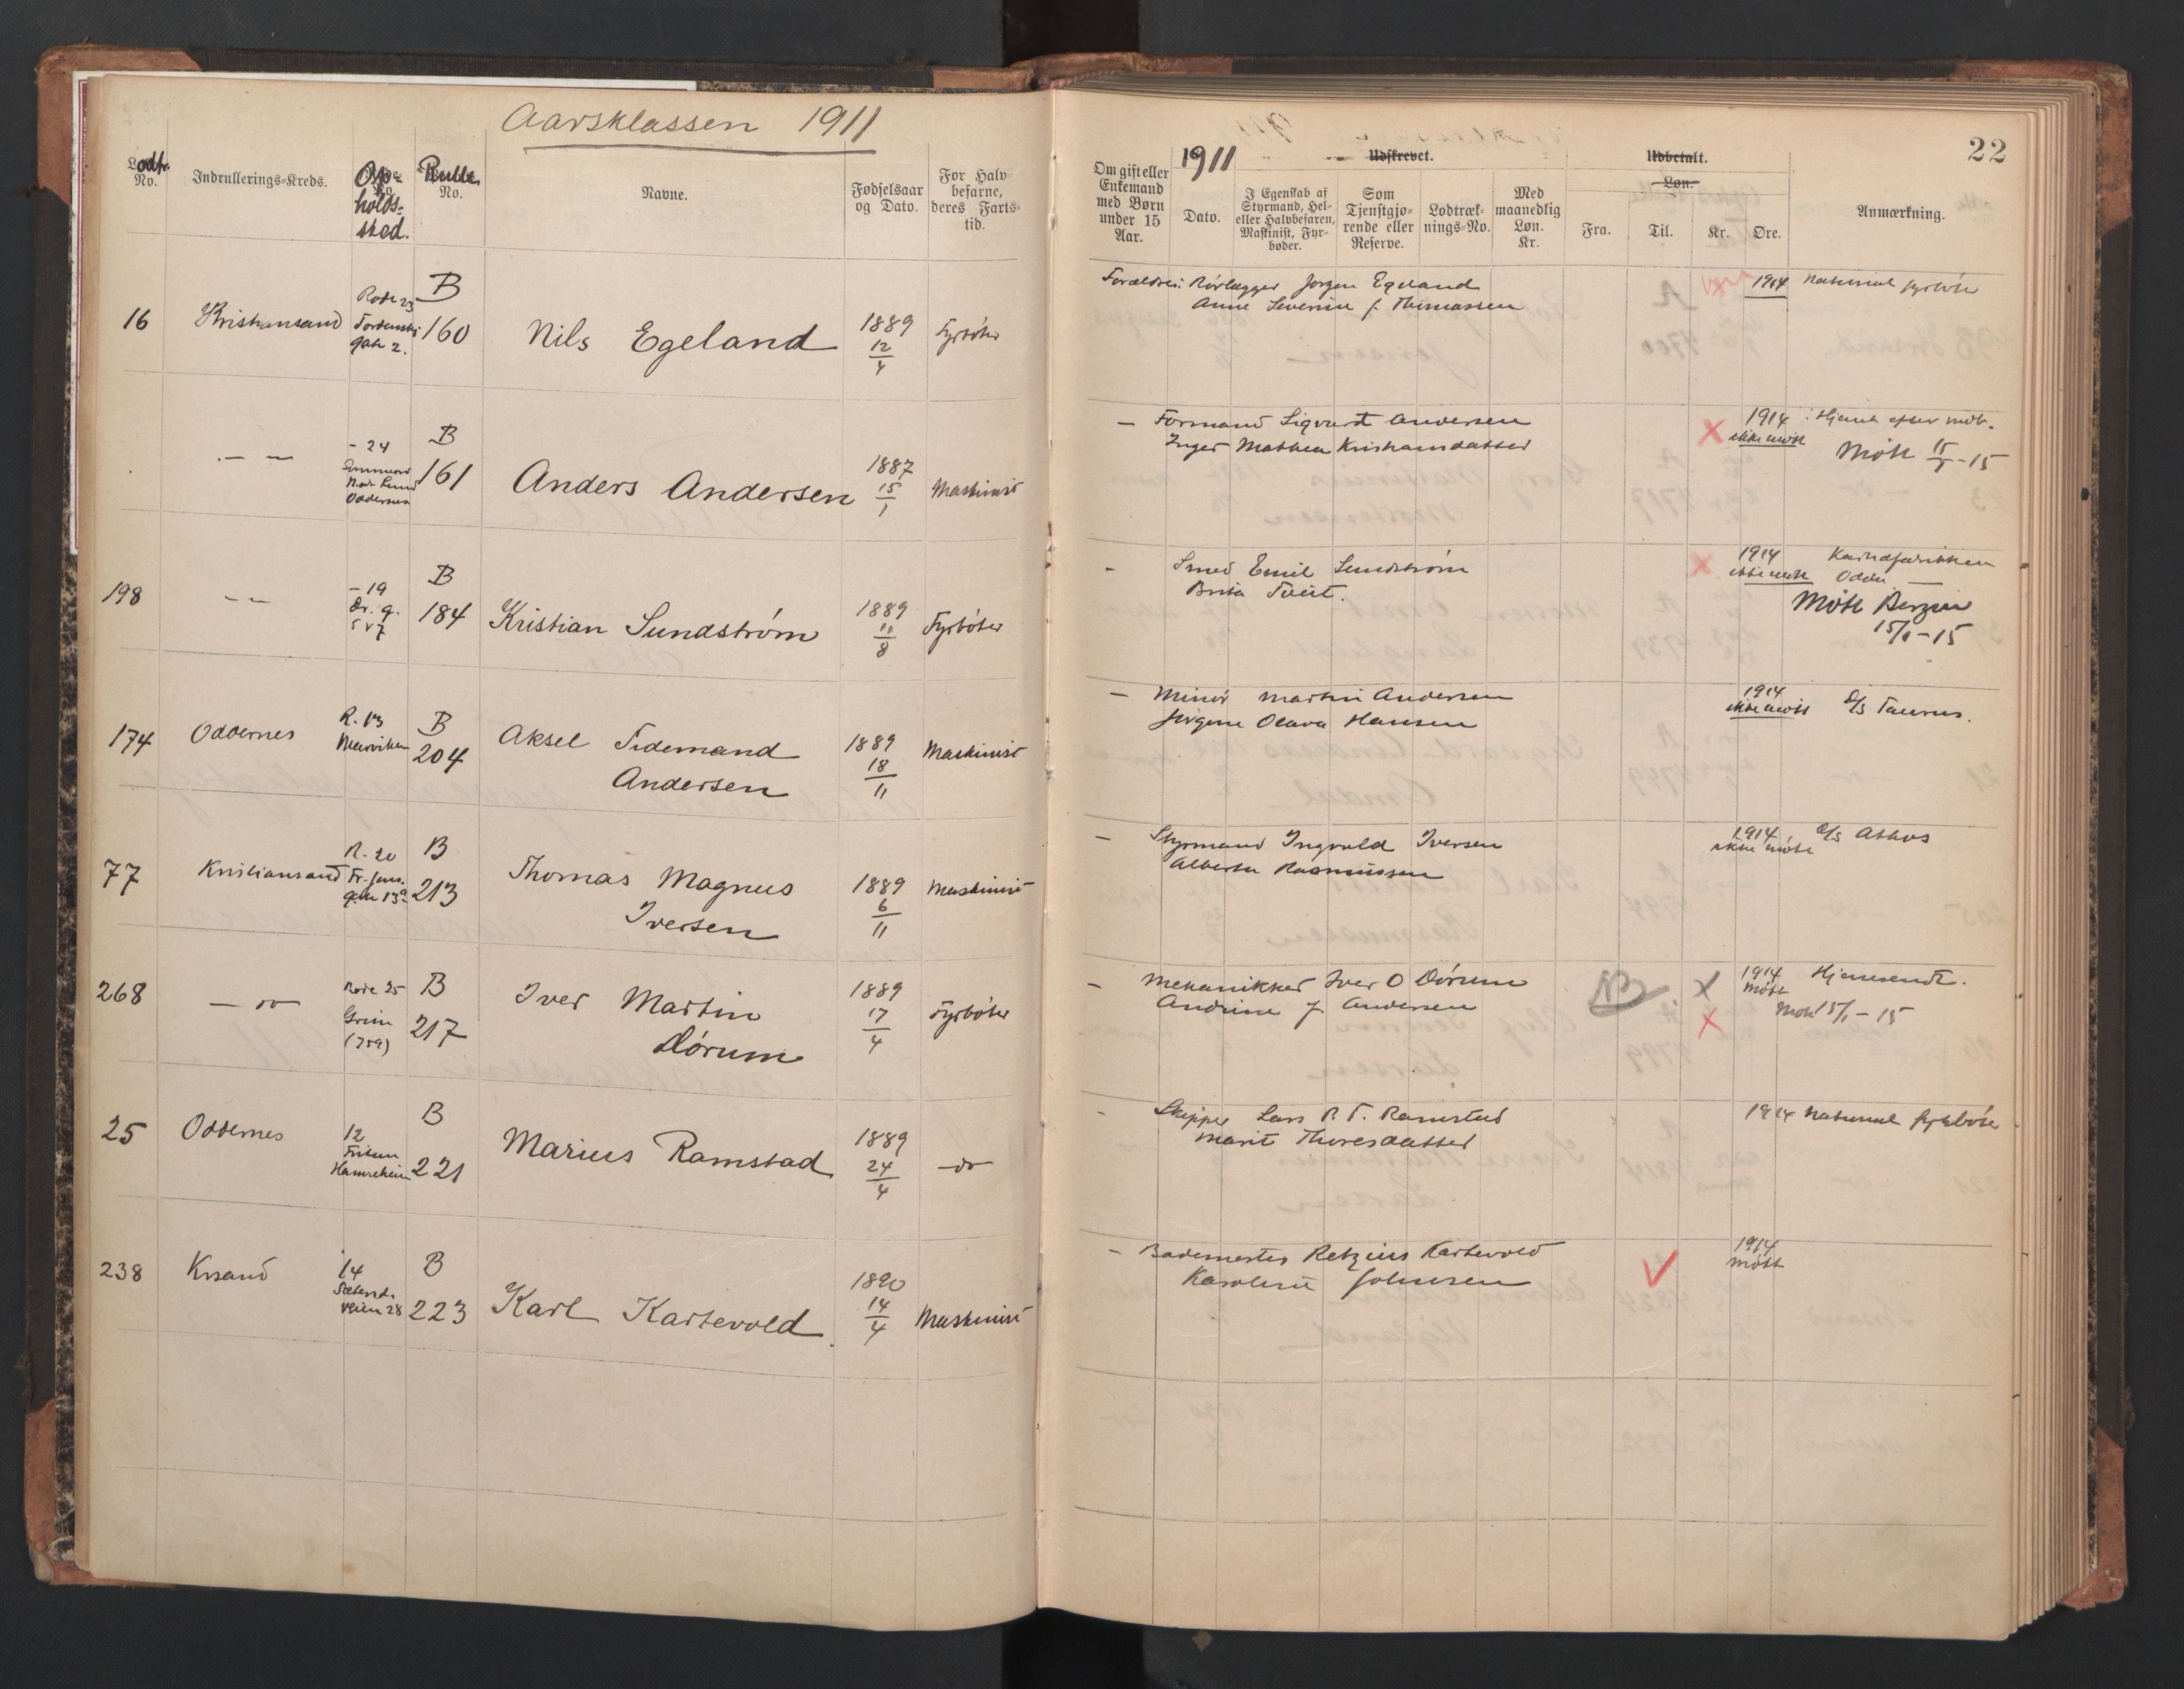 Aarsklassen 1911
Lodtr. No.
Indrullerings-Kreds.
Op-
holds-
sted.
Rulle
No.
Navne.
Fødselsaar
og Dato.
For Halv-
befarne,
deres Farts-
tid.
16
Kristiansand
Rode 23
gate 2.
B
160
Nils Egeland
1889
12
4
Fyrbøter
— —
- 24
Oddernes
B
161
Anders Andersen
1887
15
1
Maskinist
198
— —
- 19
Dr. g.
57
B
184
Kristian Sundstrøm
1889
11
8
Fyrbøter
174
Oddernes
R. 13
Marviken
B
204
Aksel Tidemand
Andersen
1889
18
11
Maskinist
77
Kristiansand
R. 20
gate 13a
B
213
Thomas Magnus
Iversen
1889
6
11
Maskinist
268
— do
Rode 25
Grim
(759)
B
217
Iver Martin
Dørum
1889
17
4
Fyrbøter
25
Oddernes
12
Hamreheia
B
221
Marius Ramstad
1889
24
4
— do
238
Krsand
14
Sætersd.
veien 28
B
223
Karl Kartevold.
1890
14
4
Maskinist
22
Om gift eller
Enkemand
med Børn
under 15
Aar.
1911
Udskrevet.
Dato.
I Egenskab af
Styrmand, Hel-
eller Halvbefaren,
Maskinist, Fyr-
bøder.
Som
Tjenstgjø-
rende eller
Reserve.
Lodtræk-
nings-No.
Med
maanedlig
Løn.
Kr.
Udbetalt.
Løn.
Fra.
Til.
Kr.
Øre.
Anmærkning.
Forældre: Rørlægger Jørgen Egeland
Anne Severine f. Thomassen
1914 National fyrbøter
— Formand Sigvard Andersen
Inger Mathea Kristiansdatter
1914
ikke møtt
Hjemk efter møte.
Møtt 15/1-15
- Smed Emil Sundstrøm
Brita Tveit.
1914
ikke møtt
Odda
Møtt Bergen
15/1-15
— Minør Martin Andersen
Jørgine Olava Hansen
1914
ikke møtt
D/S Taurus.
— Styrmand Ingvald Iversen
Alberta Rasmussen
1914
ikke møtt
D/S Athos
- Mekanikker Iver O Dørum
Andrine f. Andersen
NB
1914
møtt
Hjemsendt.
Møtt 15/1-15
- Skipper Lars P. T. Ramstad
Marit Thoresdatter
1914 National fyrbøter
— Bademester Retzius Kartevold
Karoline Johnsen
1914
møtt